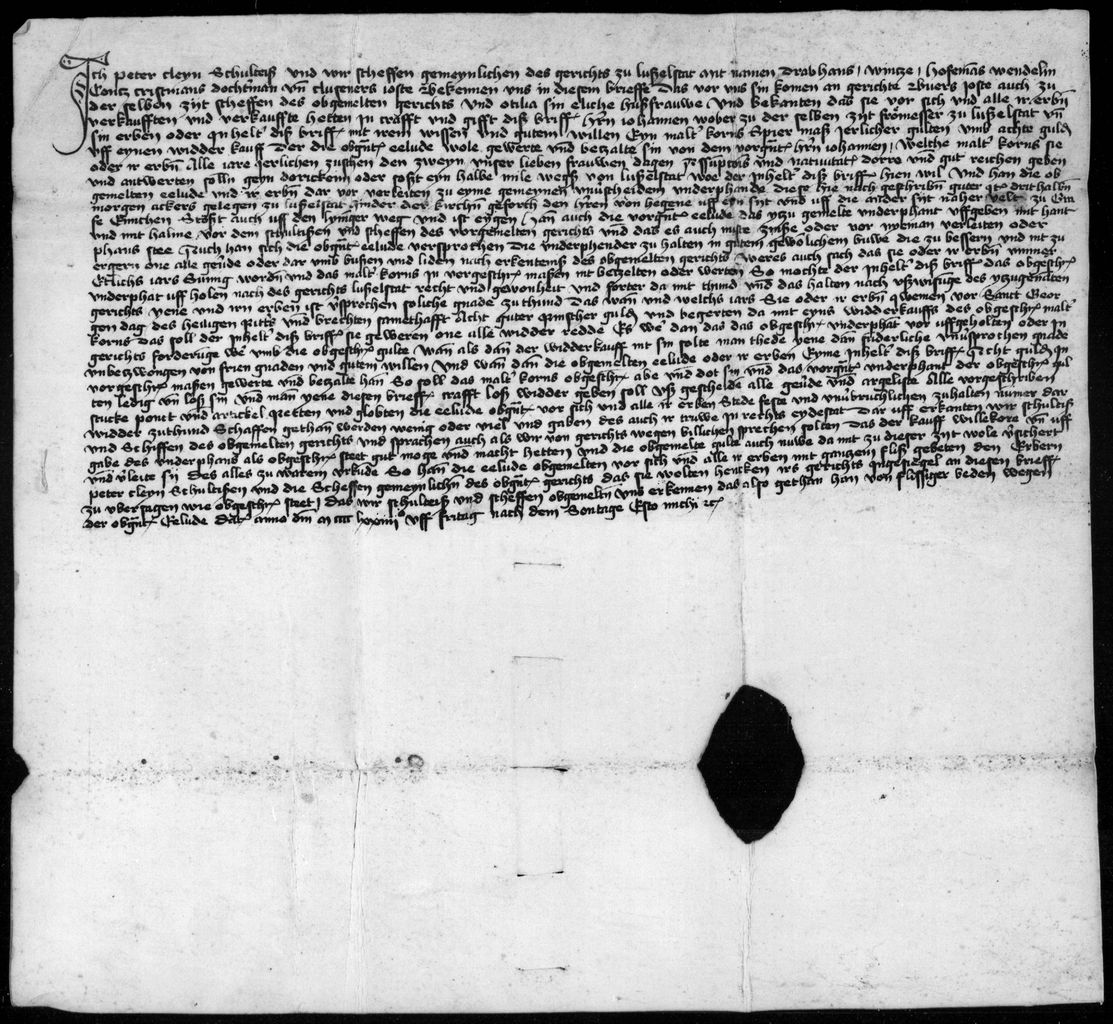 Ich Peter cleyn Schulteiß Und wir scheffen gemeynlichen des gerichts zu lußelstat mit namen Drabhans, wintze, hofemans wendelin
Contz cristmans dochtman vn cluseners ioste Bekennen uns in diesem brieffe Das vor uns sin komen an gerichte Ewers ioste auch zu
der selben zyt scheffen des obgemelten gerichts Und otilia sin eliche hußfrauwe Und bekanten das sie vor sich und alle ir erbn
verkaufften und verkauffte hetten In crafft und gifft diß briff hern iohannen wober zu der selben zyt fromesser zu lußelstat vn
sin erben oder Inhelt diß briff mit irem wissen und gutem willen Eyn malt korns Spier maß Jerlicher gulten umb achte guld
uff eynen widder kauff Der die obgnt eelude wole gewerte und betzalte sin von dem vorgnt hern iohannen, Welche malt korns sie
oder ir erbn Alle iare Jerlichen zuschen den zweyn unser lieben frauwen dagen assumptois und nativitat dorre und gut reichen geben
und antwerten solln geyn dorickem oder sost eyn halbe mile wegß von lußelstat woe der Inhelt diß briff hien wil Und han die ob
gemelten eelude und ir erbn dar vor verleiten zu eyne gemeynen unuscheidem underphande diese hie nach geschribn guter drithalbn
morgen ackers gelegen zu lußelstat hinder der kirchn geforch den heren von hegene uff eyn syt und uff die ander syt naher velt zu
se Emichen Stoßt auch uff den lyniger weg und ist eygen, han auch die vorgnt eelude das ytzu gemelte underphant uffgeben mit hant
und mit halme vor dem schultißen und scheffen des vorgemelten gerichts und das es auch niste zinße oder vor nyman verleiten oder
phans stee Auch han sich die obgnt eelude versprochen Die underphender zu halten in gutem gewolichem buwe die zu bessern und nit zu
ergern one alle geude oder dar umb bußen und liden nach erkenteniß des obgemelten gerichts weres auch sach das sie oder ir erbn ummer
Etlichs iars Sumig wordn und das malt korns In vorgeschr maßen nit betzelten oder werten So mochte der Inhelt diß briff das obgeschr
underphat uff holen nach des gerichts lußelstat recht und gewonheit und forter da mit thund und das halten nach ußwisuge des ytzugemalten
gerichts yene und irn erben ist versprochen soliche gnade zuthund Das wan und welchs iars Sie oder ir erbn qwemen vor Sanct Geor
gen dag des heiligen Ritters und brechten samethafft Acht guter Rinscher guld und begerten da mit eyns widderkauffs des obgeschr malt
korns Das soll der Inhelt diß briff sie geweren one alle widder redde Es were dan das das obgeschr underphat vor uffgeholten oder In
gerichts forderuge were umb die obgeschr gulte Wan als dan der widderkauff nit sin solte man thede yene dan sunderliche unusprochen gnade
unbezwongen von frien gnaden und gutem willen Und wan dan die obgemelten eelude oder ir erben Eyme Inhelt diß briff Acht guld In
vorgeschr maßen gewerte und betzalte han So soll das malt korns obgeschr abe und dot sin und das vorgnt underphant der obgeschr gul
ten ledig vn loß sin und man yene diesen brieff crafft loß widder geben soll Uß gescheide alle geude und argeliste Alle vorgeschriben
stucke ponct und artickel Retten und globten die eelude obgnt vor sich und alle ir erben Stede feste und unuerbruchlichen zuhalten numer dar
widder zuthund Schaffen gethan werden wenig oder viel und gaben des auch ir truwe In rechts eydestat Dar uff erkanten wir schulteiß
und Scheffen des obgemelten gerichts und sprachen auch als wir von gerichts wegen billichen sprechen solten Das der kauff willekore vn uff
gabe des underphand als obgeschr steet gut moge und macht hetten Und die obgemelte gulte auch nuwe da mit zu dieser zyt wole versichert
vn verleite sin Des alles zu warem urkunde So han die eelude obgemelten vor sich und alle ir erben mit gantzem fliß gebeten den Erbern
Peter cleyn Schultißen und die Scheffen gemeynlichn des obgnt gerichts das sie wolten hencken irs gerichts Ingesiegel an diesen brieff
zu ubersagen wie obgeschr steet, Das wir schulteiß und scheffen obgemelt uns erkennen das also gethan han von flissiger beden wegen
der obgnt Eelude Dat anno dm m cccc lxxiiii uff fritag nach dem Sontage Esto michi